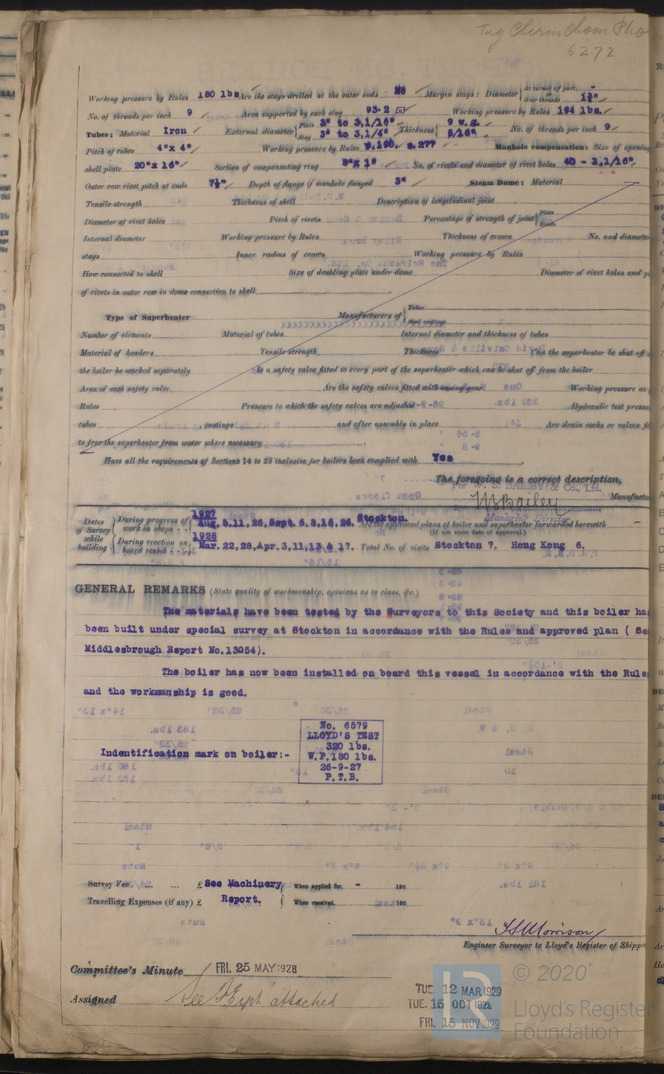 Tug Chirm Chom Pho
6272
Working pressure by Rules 180 lbs. Are the stays drilled at the outer ends No Margin stays: Diameter { At turned off part, - Over threads 1¾"
No. of threads per inch 9 Area supported by each stay 93·2 Working pressure by Rules 194 lbs.
Tubes: Material Iron External diameter { Plain 3" to 3,1/16" Stay 3" to 3,1/4" Thickness { 9 w.g. 5/16" No. of threads per inch 9
Pitch of tubes 4"x 4" Working pressure by Rules Manhole compensation: Size of opening
shell plate 20"x 16" Section of compensating ring 8"x 1" No. of rivets and diameter of rivet holes 40 - 1,1/16"
Outer row rivet pitch at ends 7½" Depth of flange if manhole flanged 3" Steam Dome: Material
Tensile strength Thickness of shell Description of longitudinal joint
Diameter of rivet holes Pitch of rivets Percentage of strength of joint { Plate Rivets
Internal diameter Working pressure by Rules Thickness of crown No. and diameter
stays Inner radius of crown Working pressure by Rules
How connected to shell Size of doubling plate under dome Diameter of rivet holes and p
of rivets in outer row in dome connection to shell
Type of Superheater Manufacturers of { Tubes Steel castings
Number of elements Material of tubes Internal diameter and thickness of tubes
Material of headers Tensile strength Thickness Can the superheater be shut off
the boiler be worked separately Is a safety valve fitted to every part of the superheater which can be shut off from the boiler
Area of each safety valve Are the safety valves fitted with easing gear Working pressure as
Rules Pressure to which the safety valves are adjusted Hydraulic test press
tubes castings and after assembly in place Are drain cocks or valves fi
to free the superheater from water where necessary
Have all the requirements of Sections 14 to 28 inclusive for boilers been complied with Yes
The foregoing is a correct description,
& Co., Ltd.
Manufactu
Managing Director
Dates of Survey while building { During progress of work in shops - - 1927 Aug.5,11,26,Sept.6,8,16,26. Stockton. Are the approved plans of boiler and superheater forwarded herewith -
(If not state date of approval.)
During erection on board vessel - - - 1928 Mar.22,28,Apr.3,11,13 & 17. Total No. of visits Stockton 7. Hong Kong 6.
GENERAL REMARKS (State quality of workmanship, opinions as to class, &c.)
The materials have been tested by the Surveyors to this Society and this boiler has
been built under special survey at Stockton in accordance with the Rules and approved plan ( Se
Middlesbrough Report No.13054).
The boiler has now been installed on board this vessel in accordance with the Rule
and the workmanship is good.
Indentification mark on boiler:-
No. 6579
LLOYD'S TEST
320 lbs.
W.P.180 lbs.
26-9-27
P.T.B.
Survey Fee ... ... £ See Machinery When applied for, - 192
Travelling Expenses (if any) £ Report. When received, 192
Engineer Surveyor to Lloyd's Register of Shipp
Committee's Minute FRI. 25 MAY 1928
Assigned See F.E. rpt attached
TUE. 12 MAR 1929
TUE. 15 OCT 1929
FRI. 15 NOV 1929
LR
© 2020
Lloyd's Register
Foundation